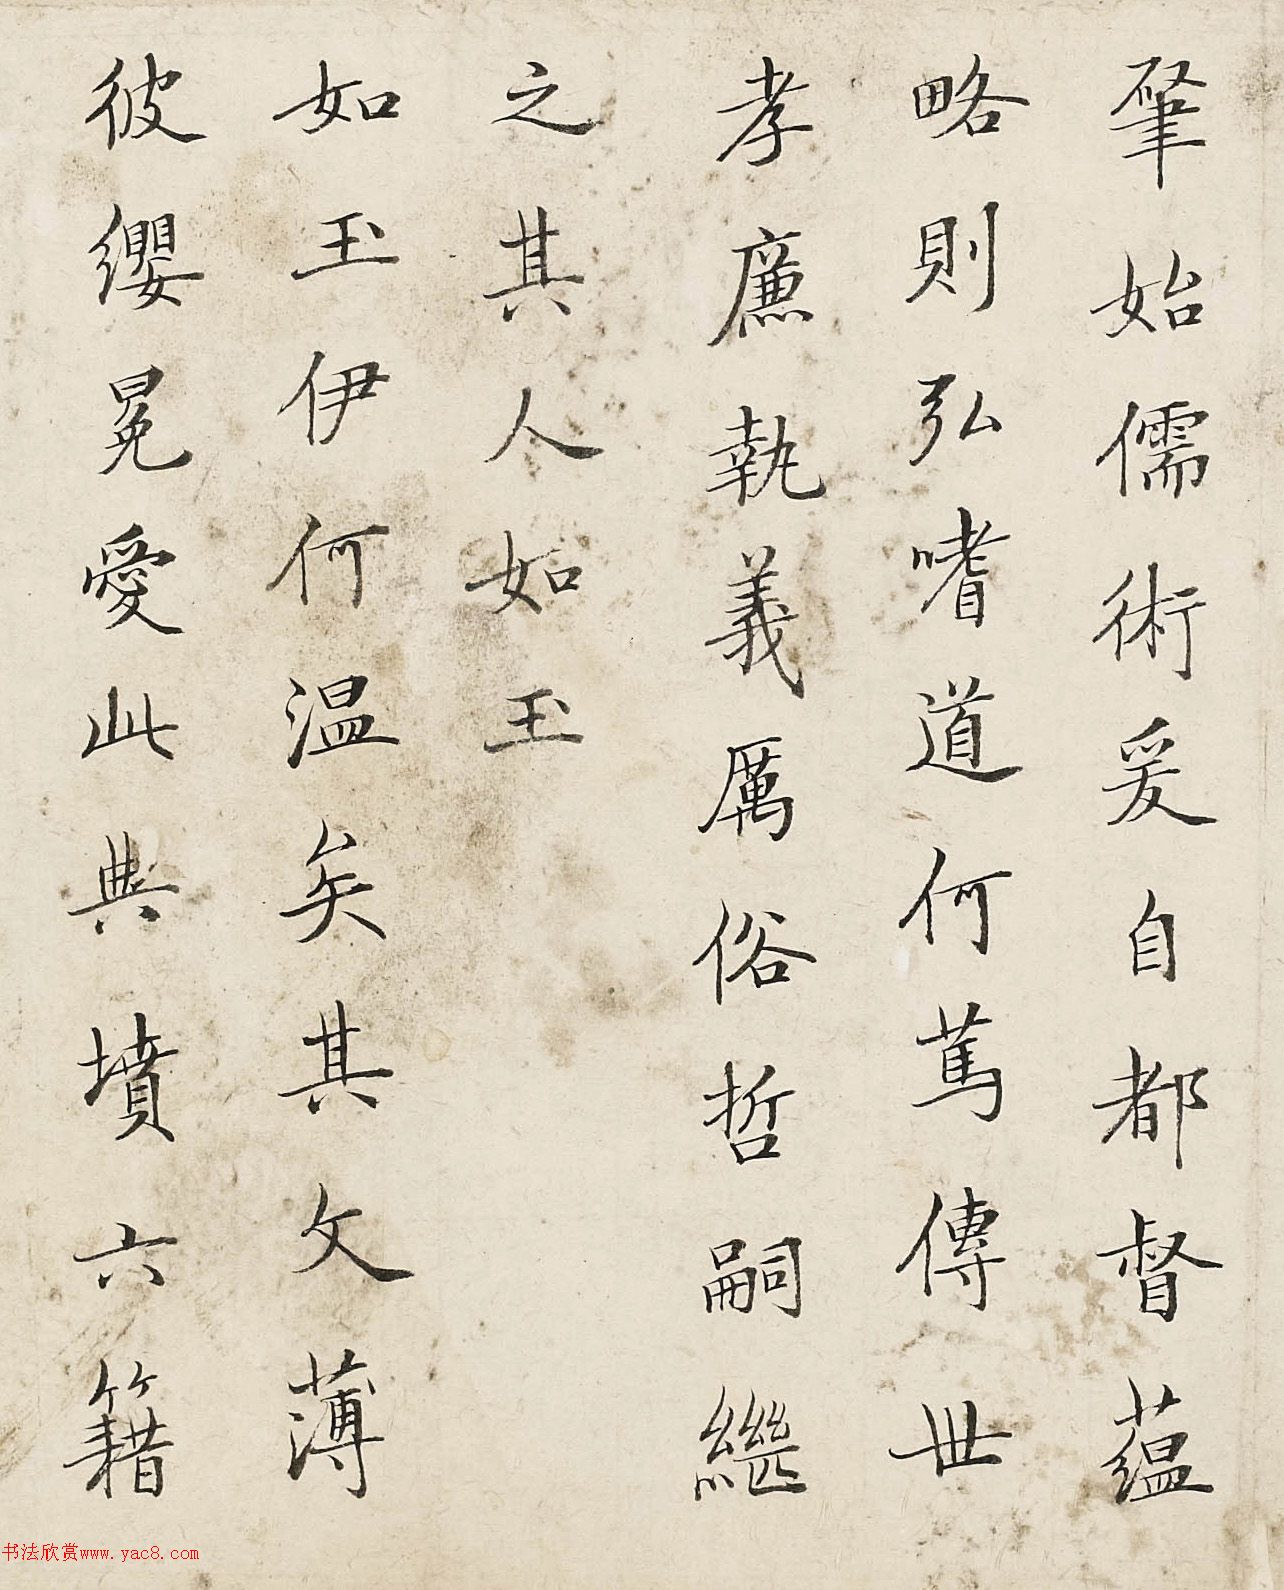 肇始儒術爰自都督蘊
略則弘嗜道何篤傳世
孝廉執義厲俗哲嗣繼
之其人如玉
如玉伊何温矣其文薄
彼纓冕愛此典墳六籍
书法欣赏www.yac8.com